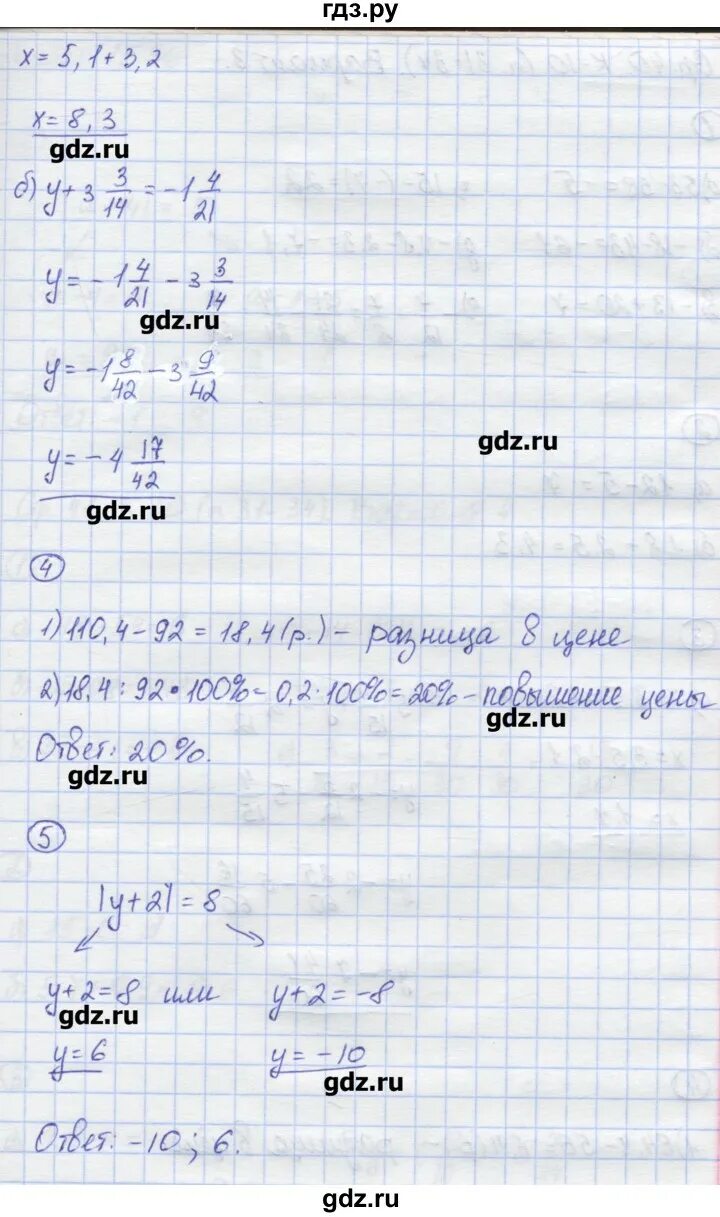 гдз.ру
x = 5,1 + 3,2
x = 8,3
gdz.ru
б) y + 3 3/14 = -1 4/21
y = -1 4/21 - 3 3/14
gdz.ru
y = -1 8/42 - 3 9/42
gdz.ru
y = -4 17/42
gdz.ru
4
1) 110,4 - 92 = 18,4 (р.) - разница в цене
2) 18,4 : 92 · 100% = 0,2 · 100% = 20% - повышение цены
gdz.ru
Ответ: 20%.
gdz.ru
5
|y+2| = 8
y+2=8 или y+2=-8
gdz.ru
y=6 y=-10
gdz.ru
Ответ: -10; 6.
gdz.ru